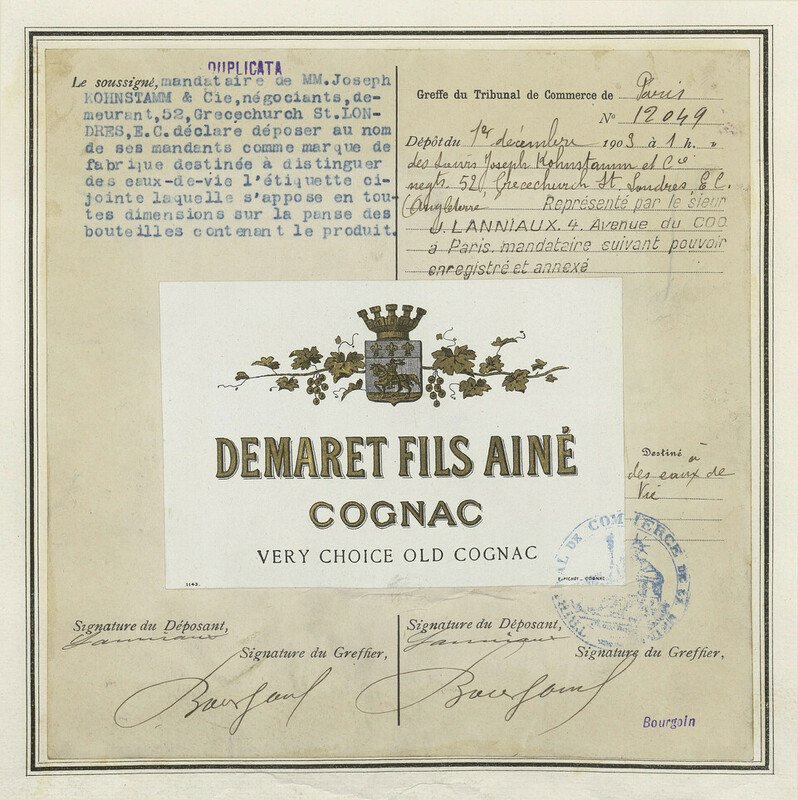 DUPLICATA
Le soussigné, mandataire de MM.Joseph
KOHNSTAMM & Cie,négociants,de-
meurant,52,Gracechurch St.LON-
DRES,E.C.déclare déposer au nom
de ses mandants comme marque de
fabrique destinée à distinguer
des eaux-de-vie l'étiquette ci-
jointe laquelle s'appose en tou-
tes dimensions sur la panse des
bouteilles contenant le produit.
Greffe du Tribunal de Commerce de Paris
No 12049
Dépôt du 1er décembre 1903 à 1 h. "
des Sieurs Joseph Kohnstamm et Cie
negts. 52, Gracechurch St. Londres, E.C.
(Angleterre Représenté par le sieur
LANNIAUX. 4. Avenue du COQ
à Paris. mandataire suivant pouvoir
enregistré et annexé
DEMARET FILS AINÉ
COGNAC
VERY CHOICE OLD COGNAC
1143.
COGNAC
Destiné à
des eaux de
Vie
TRIBUNAL DE COMMERCE DE LA
Signature du Déposant,
Lanniaux
Signature du Greffier,
Bourgoin
Signature du Déposant,
Lanniaux
Signature du Greffier,
Bourgoin
Bourgoin